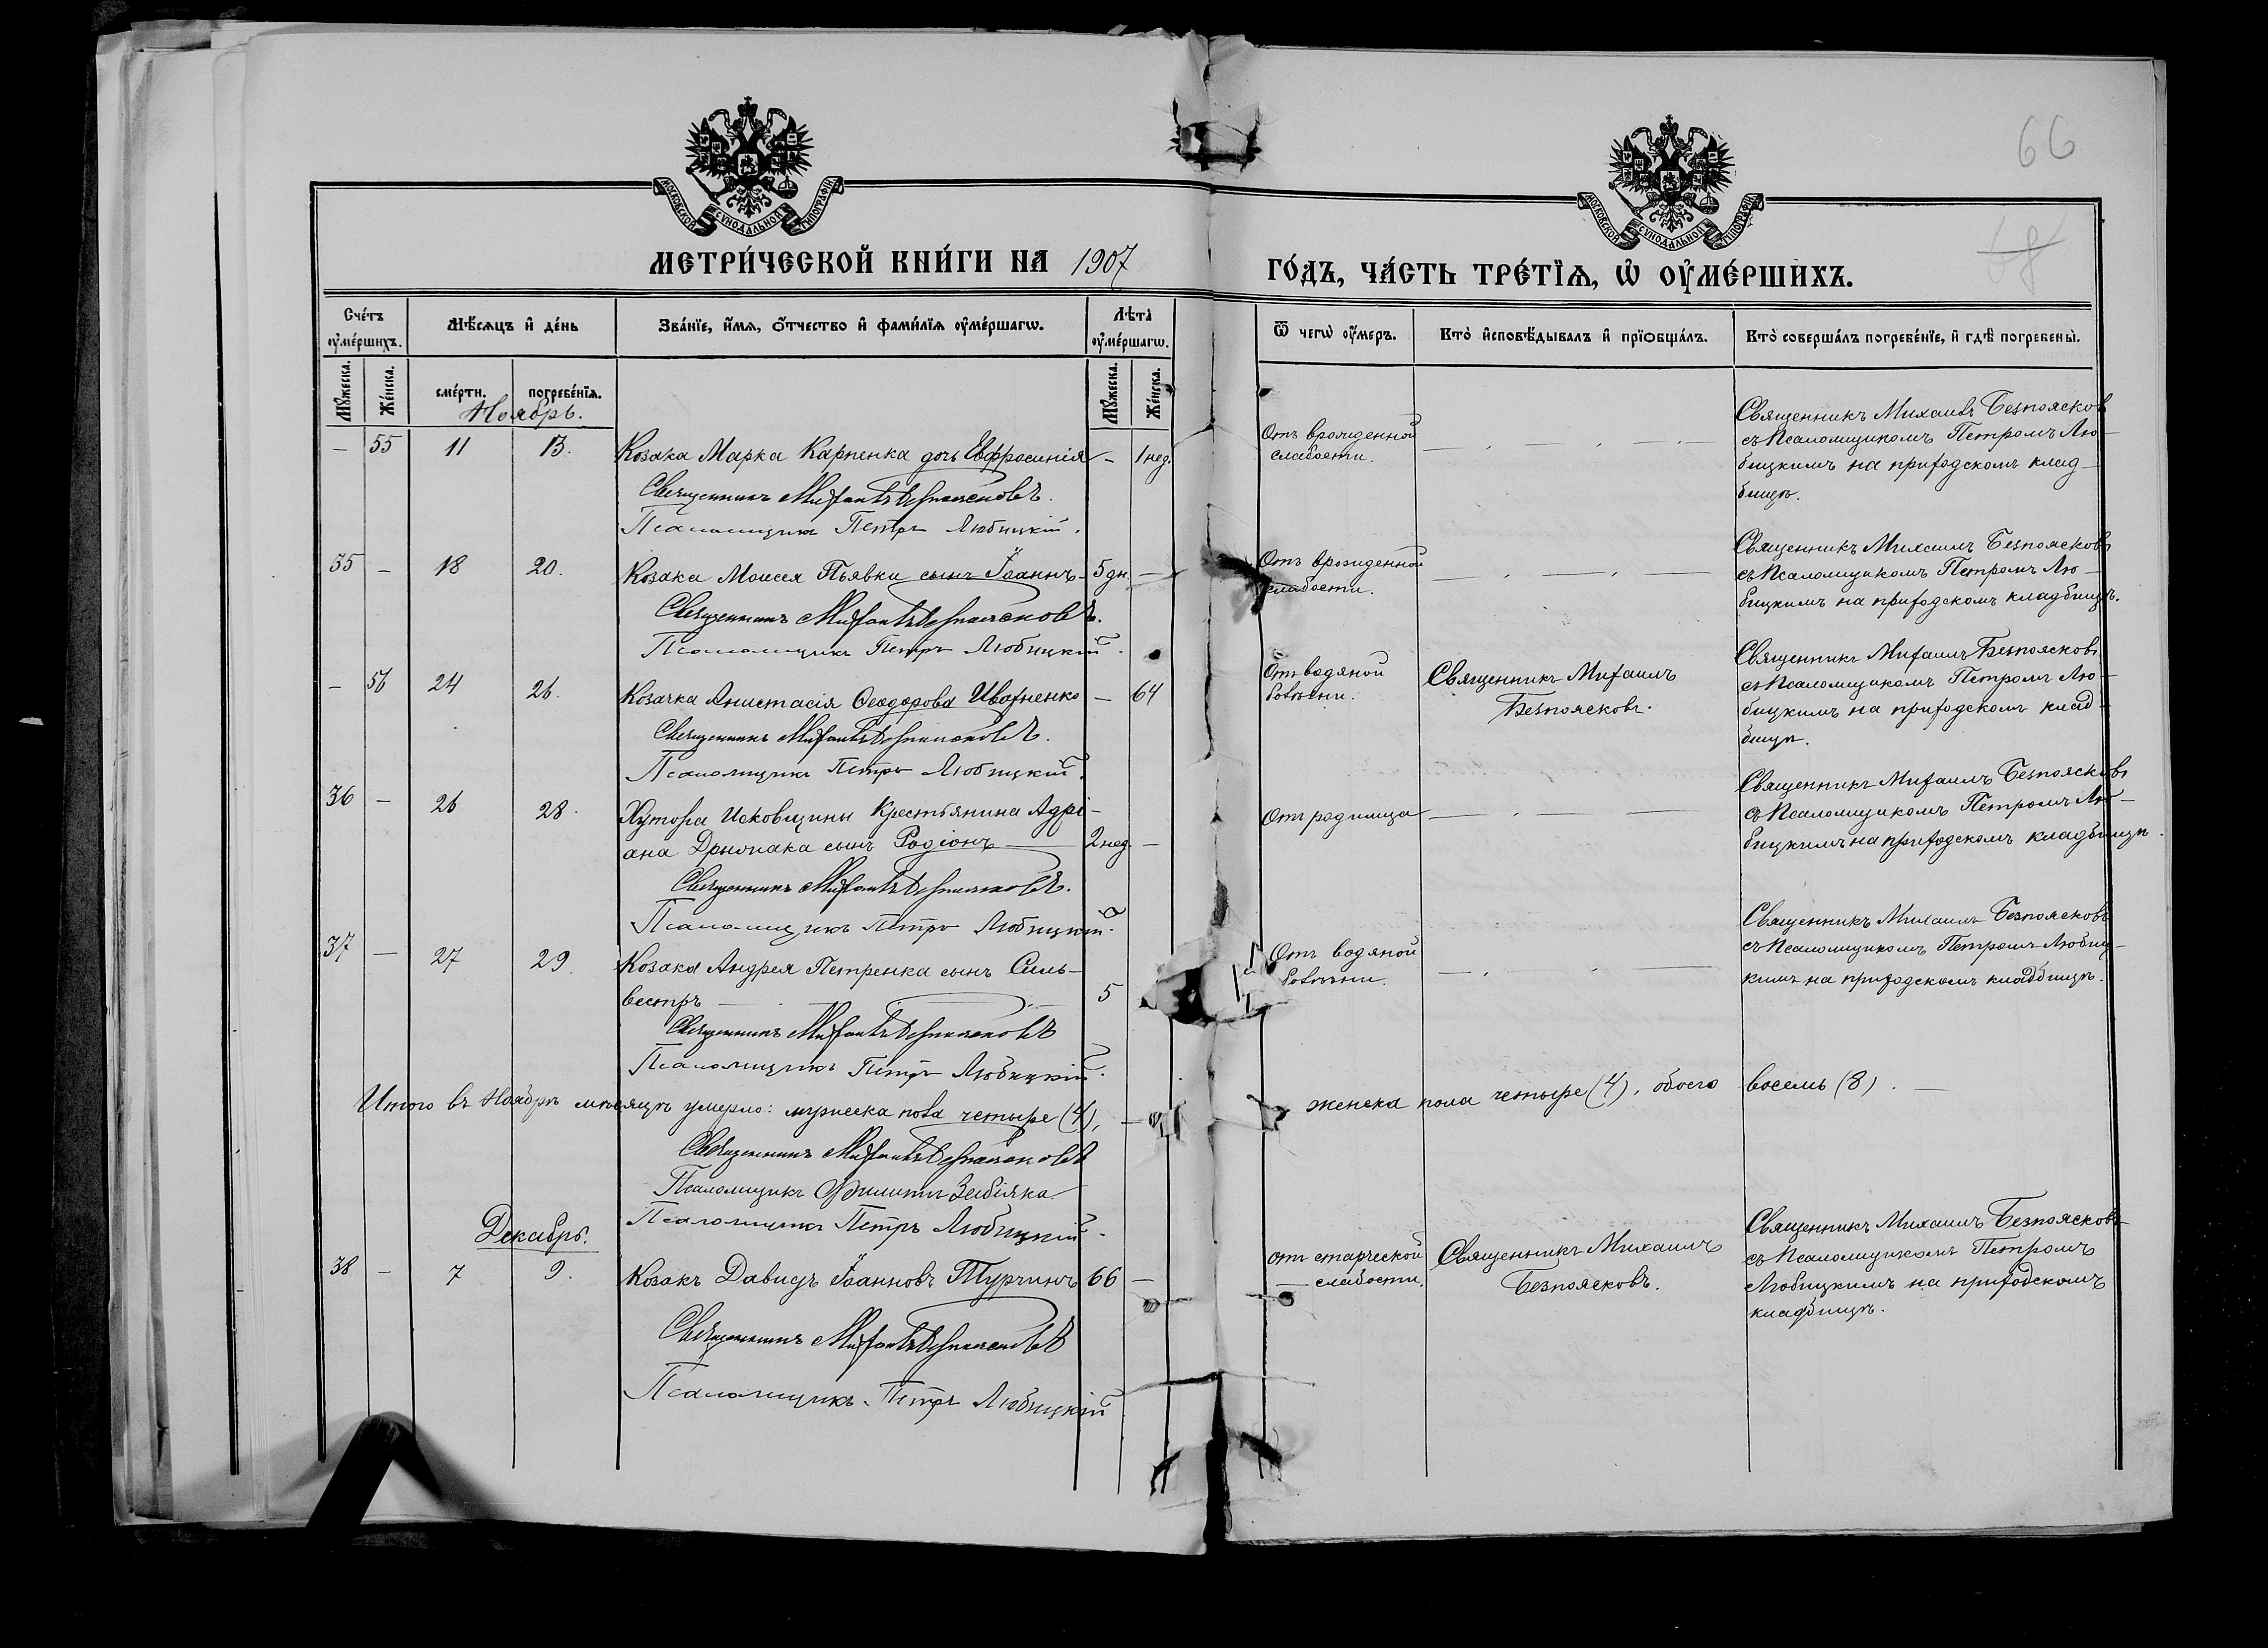 66
68
МОСКОВСКОЙ СѴНОДАЛЬНОЙ ТИПОГРАФІИ
МОСКОВСКОЙ СѴНОДАЛЬНОЙ ТИПОГРАФІИ
МЕТРИ́ЧЕСКОЙ КНИ́ГИ НА 1907 ГО́ДЪ, ЧА́СТЬ ТРЕ́ТІѦ, Ѡ҆ ОУ҆МЕ́РШИХЪ.
Сче́тъ оу҆ме́ршихъ.
Мѣ́сяцъ и҆ де́нь
Зва́нїе, и҆́мя, ѻ҆́тчество и҆ фами́лїя оу҆ме́ршагѡ.
Лѣта̀ оу҆ме́ршагѡ.
Ѿ чегѡ̀ оу҆́меръ.
Кто̀ и҆сповѣ́дывалъ и҆ прїѻбща́лъ.
Кто̀ соверша́лъ погребе́нїе, и҆ гдѣ̀ погребены̀.
Мꙋ́жеска.
Же́нска.
сме́рти.
погребе́нїя.
Мꙋ́жеска.
Же́нска.
Ноябрь.
— 55 11 13. Козака Марка Карпенка дочь Евфросинія — 1 нед.
Священникъ Михаилъ Безпоясковъ.
Псаломщикъ Петръ Любицкій.
Отъ врожденной
слабости.
Священникъ Михаилъ Безпоясковъ
съ Псаломщикомъ Петромъ Лю-
бицкимъ на приходскомъ клад-
бищѣ.
35 — 18 20. Козака Моисея Пьявки сынъ Іоаннъ — 5 дн. —
Священникъ Михаилъ Безпоясковъ.
Псаломщикъ Петръ Любицкій.
Отъ врожденной
слабости.
Священникъ Михаилъ Безпоясковъ
съ Псаломщикомъ Петромъ Лю-
бицкимъ на приходскомъ кладбищѣ.
— 56 24 26. Козачка Анистасія Ѳеодорова Ивахненко — 64
Священникъ Михаилъ Безпоясковъ.
Псаломщикъ Петръ Любицкій.
Отъ водяной
болѣзни.
Священникъ Михаилъ
Безпоясковъ.
Священникъ Михаилъ Безпоясковъ
съ Псаломщикомъ Петромъ Лю-
бицкимъ на приходскомъ клад-
бищѣ.
36 — 26 28. Хутора Исковщины Крестьянина Адрі-
ана сынъ Родіонъ — 2 нед. —
Священникъ Михаилъ Безпоясковъ.
Псаломщикъ Петръ Любицкій.
Отъ родимца
Священникъ Михаилъ Безпоясковъ
съ Псаломщикомъ Петромъ Лю-
бицкимъ на приходскомъ кладбищѣ.
37 — 27 29. Козака Андрея Петренка сынъ Силь-
вестръ — 5
Священникъ Михаилъ Безпоясковъ
Псаломщикъ Петръ Любицкій.
Отъ водяной
болѣзни.
Священникъ Михаилъ Безпоясковъ
съ Псаломщикомъ Петромъ Любиц-
кимъ на приходскомъ кладбищѣ.
Итого въ Ноябрѣ мѣсяцѣ умерло: мужеска пола четыре (4), — женска пола четыре (4), обоего восемь (8). —
Священникъ Михаилъ Безпоясковъ
Псаломщикъ Филиппъ
Псаломщикъ Петръ Любицкій.
Декабрь.
38 — 7 9. Козакъ Давидъ Іоанновъ Турчинъ 66 —
Священникъ Михаилъ Безпоясковъ
Псаломщикъ Петръ Любицкій
отъ старческой
слабости.
Священникъ Михаилъ
Безпоясковъ.
Священникъ Михаилъ Безпоясковъ
съ Псаломщикомъ Петромъ
Любицкимъ на приходскомъ
кладбищѣ.